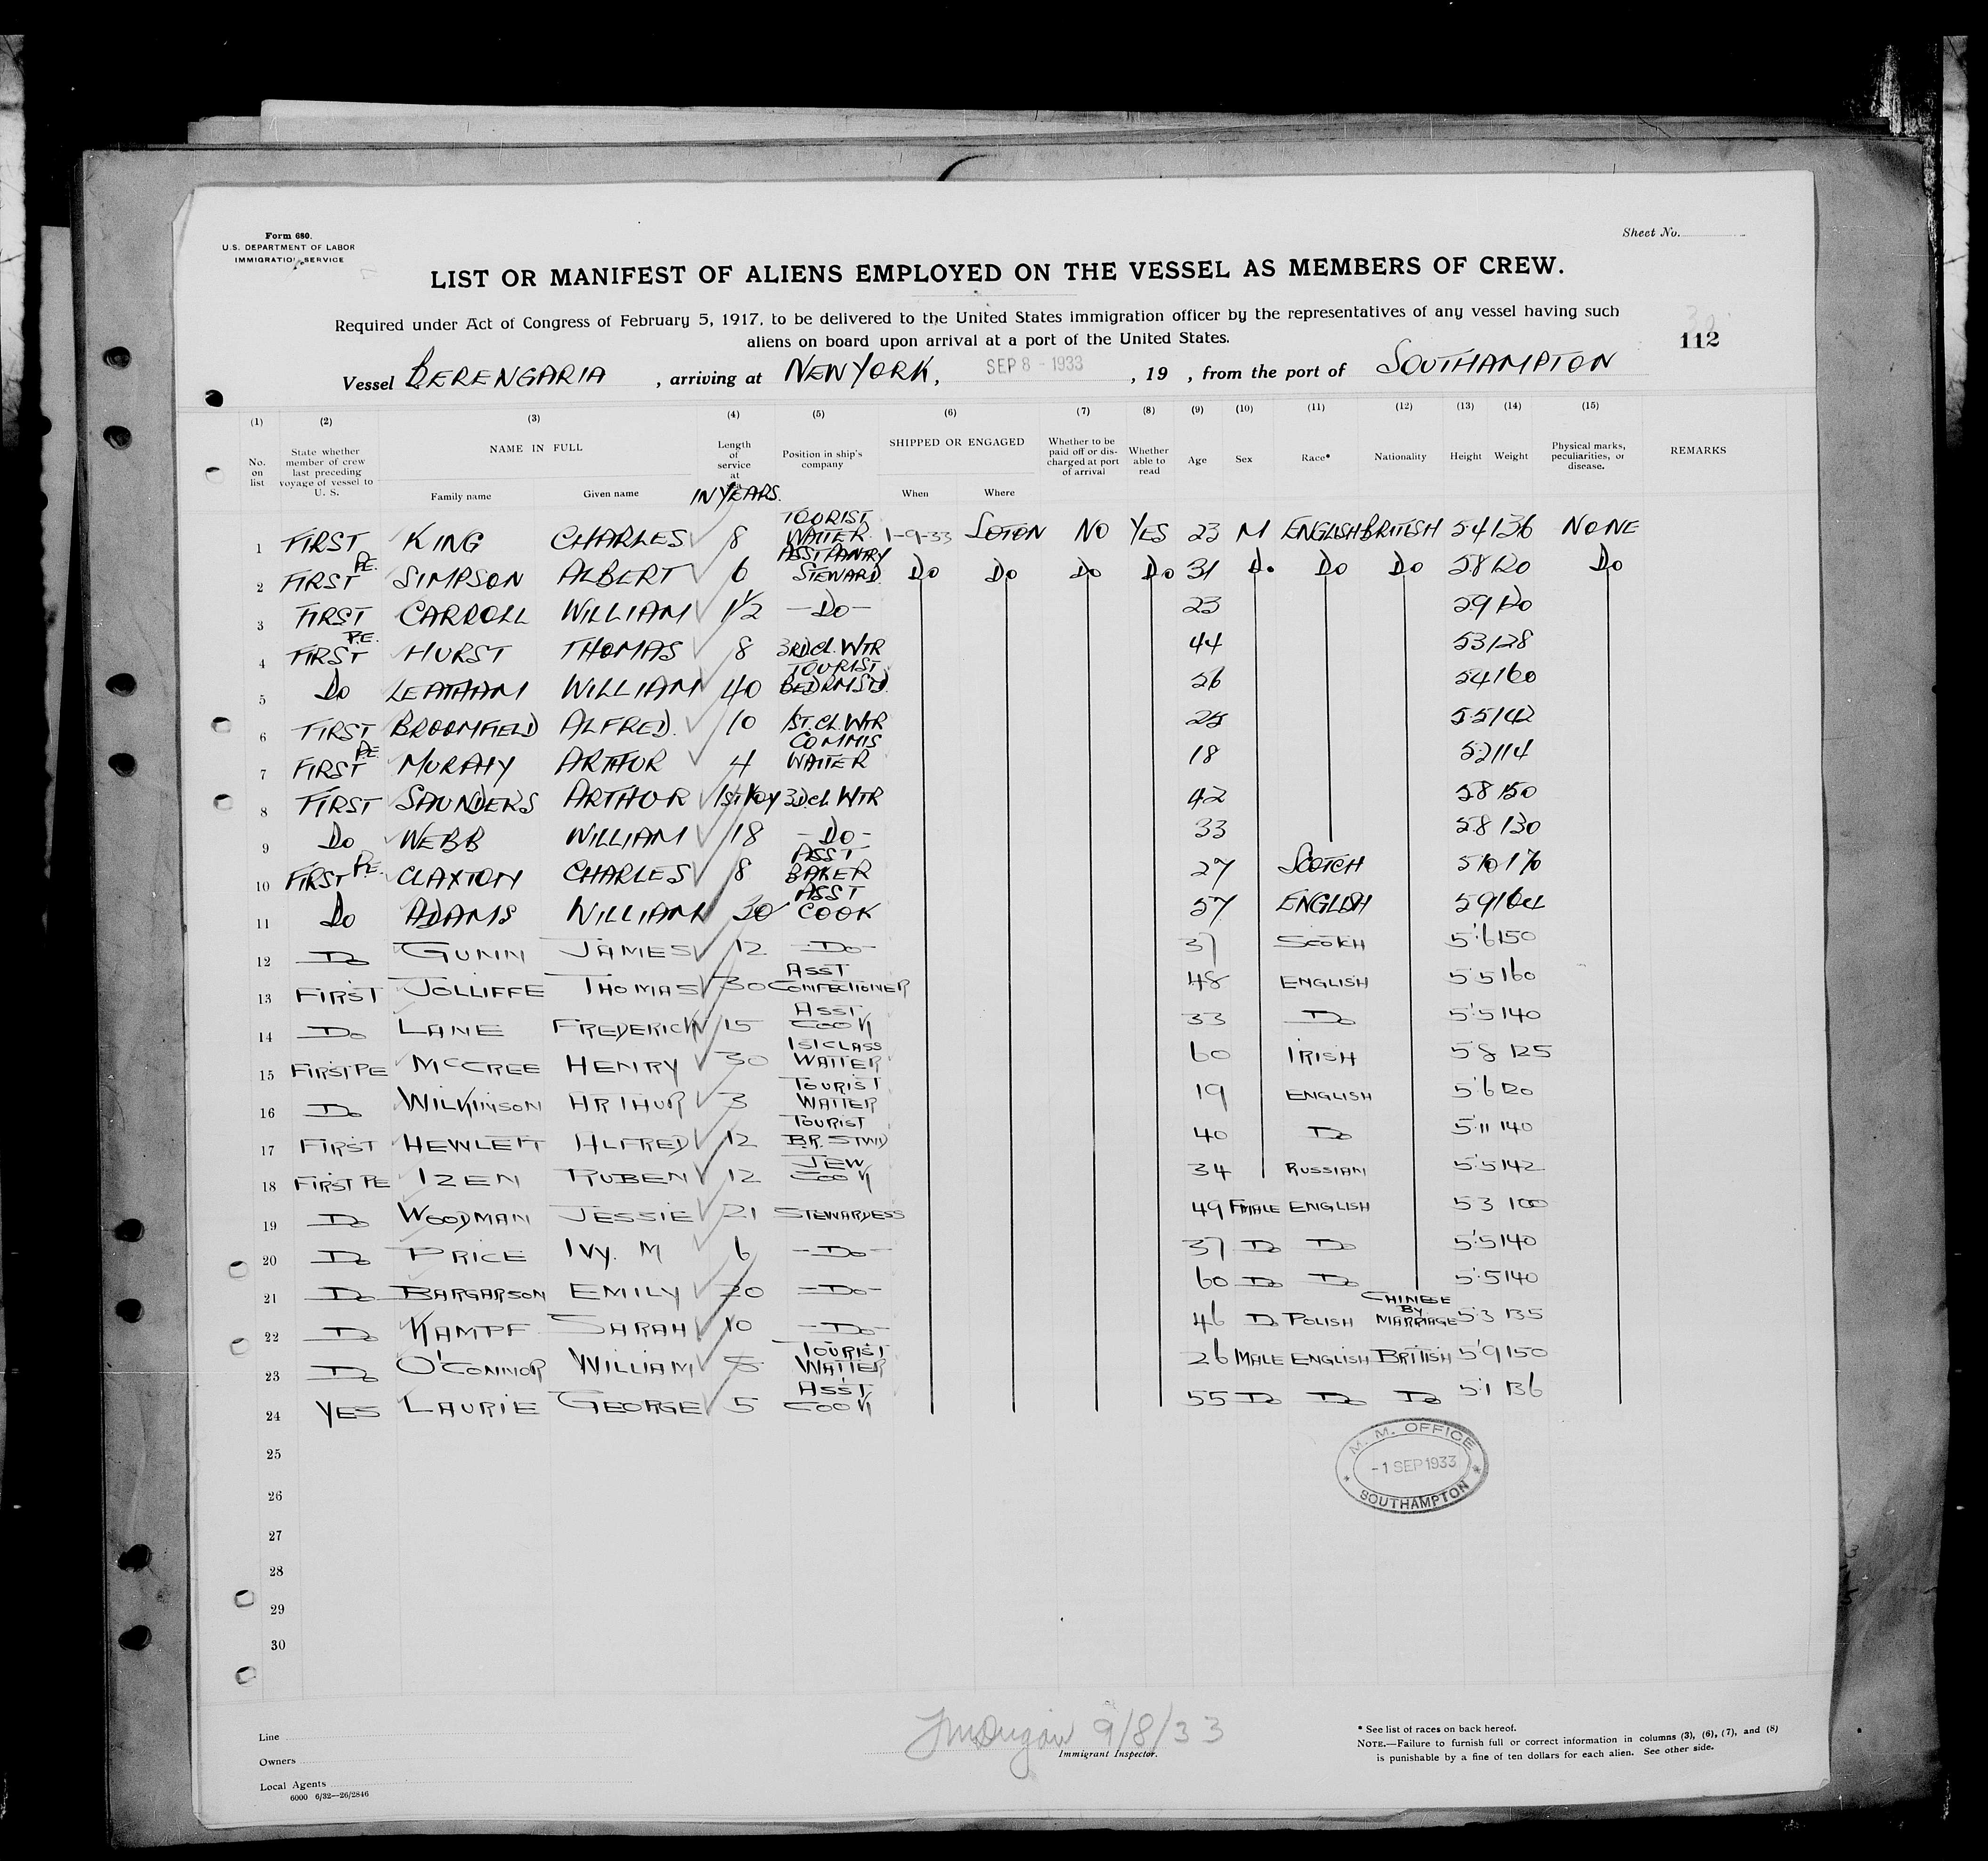 Form 680.
U.S. DEPARTMENT OF LABOR
IMMIGRATION SERVICE
Sheet No.
LIST OR MANIFEST OF ALIENS EMPLOYED ON THE VESSEL AS MEMBERS OF CREW.
Required under Act of Congress of February 5, 1917, to be delivered to the United States immigration officer by the representatives of any vessel having such
aliens on board upon arrival at a port of the United States.
112
Vessel BERENGARIA, arriving at NEW YORK, SEP 8 - 1933, 19 , from the port of SOUTHAMPTON
(1) (2) (3) (4) (5) (6) (7) (8) (9) (10) (11) (12) (13) (14) (15)
No. on list State whether member of crew last preceding voyage of vessel to U. S. NAME IN FULL Family name Given name Length of service at IN YEARS. Position in ship's company SHIPPED OR ENGAGED When Where Whether to be paid off or discharged at port of arrival Whether able to read Age Sex Race* Nationality Height Weight Physical marks, peculiarities, or disease. REMARKS
1 FIRST KING CHARLES 8 TOURIST WAITER 1-9-33 SOTON NO YES 23 M ENGLISH BRITISH 5 4 136 NONE
2 FIRST P.E. SIMPSON ALBERT 6 ASST PANTRY STEWARD Do Do Do Do 31 Do Do Do 5 8 120 Do
3 FIRST CARROLL WILLIAM 1 1/2 -Do- 23 5 9 120
4 FIRST P.E. HURST THOMAS 8 3RD CL. WTR 44 5 3 128
5 Do LEATHAM WILLIAM 40 TOURIST BEDRM STD. 26 5 4 160
6 FIRST BROOMFIELD ALFRED. 10 1ST. CL. WTR 25 5 5 142
7 FIRST P.E. MURPHY ARTHUR 4 COMMIS WAITER 18 5 2 114
8 FIRST SAUNDERS ARTHUR 1st Voy 3D. CL WTR 42 5 8 150
9 Do WEBB WILLIAM 18 -Do- 33 5 8 130
10 FIRST P.E. CLAXTON CHARLES 8 ASST BAKER 27 SCOTCH 5 10 170
11 Do ADAMS WILLIAM 30 ASST COOK 57 ENGLISH 5 9 164
12 Do GUNN JAMES 12 -Do- 37 SCOTCH 5'6 150
13 FIRST JOLLIFFE THOMAS 30 ASST CONFECTIONER 48 ENGLISH 5'5 160
14 Do LANE FREDERICK 15 ASST COOK 33 Do 5'5 140
15 FIRST PE McCREE HENRY 30 1ST CLASS WAITER 60 IRISH 5 8 125
16 Do WILKINSON ARTHUR 3 TOURIST WAITER 19 ENGLISH 5'6 120
17 FIRST HEWLETT ALFRED 12 TOURIST B.R. STWD 40 Do 5'11 140
18 FIRST PE IZEN RUBEN 12 JEW COOK 34 RUSSIAN 5'5 142
19 Do WOODMAN JESSIE 21 STEWARDESS 49 FMALE ENGLISH 5 3 100
20 Do PRICE IVY. M 6 -Do- 37 Do Do 5'5 140
21 Do BARGARSON EMILY 20 -Do- 60 Do Do 5'5 140
22 Do KAMPF SARAH 10 -Do- 46 Do POLISH CHINESE BY MARRIAGE 5'3 135
23 Do O'CONNOR WILLIAM 5 TOURIST WAITER 26 MALE ENGLISH BRITISH 5'9 150
24 YES LAURIE GEORGE 5 ASST COOK 55 Do Do Do 5'1 136
25
M. M. OFFICE
-1 SEP 1933
SOUTHAMPTON
26
27
28
29
30
Line
Owners
Local Agents
6000 6/32—26/2846
9/8/33
Immigrant Inspector.
* See list of races on back hereof.
NOTE.—Failure to furnish full or correct information in columns (3), (6), (7), and (8)
is punishable by a fine of ten dollars for each alien. See other side.